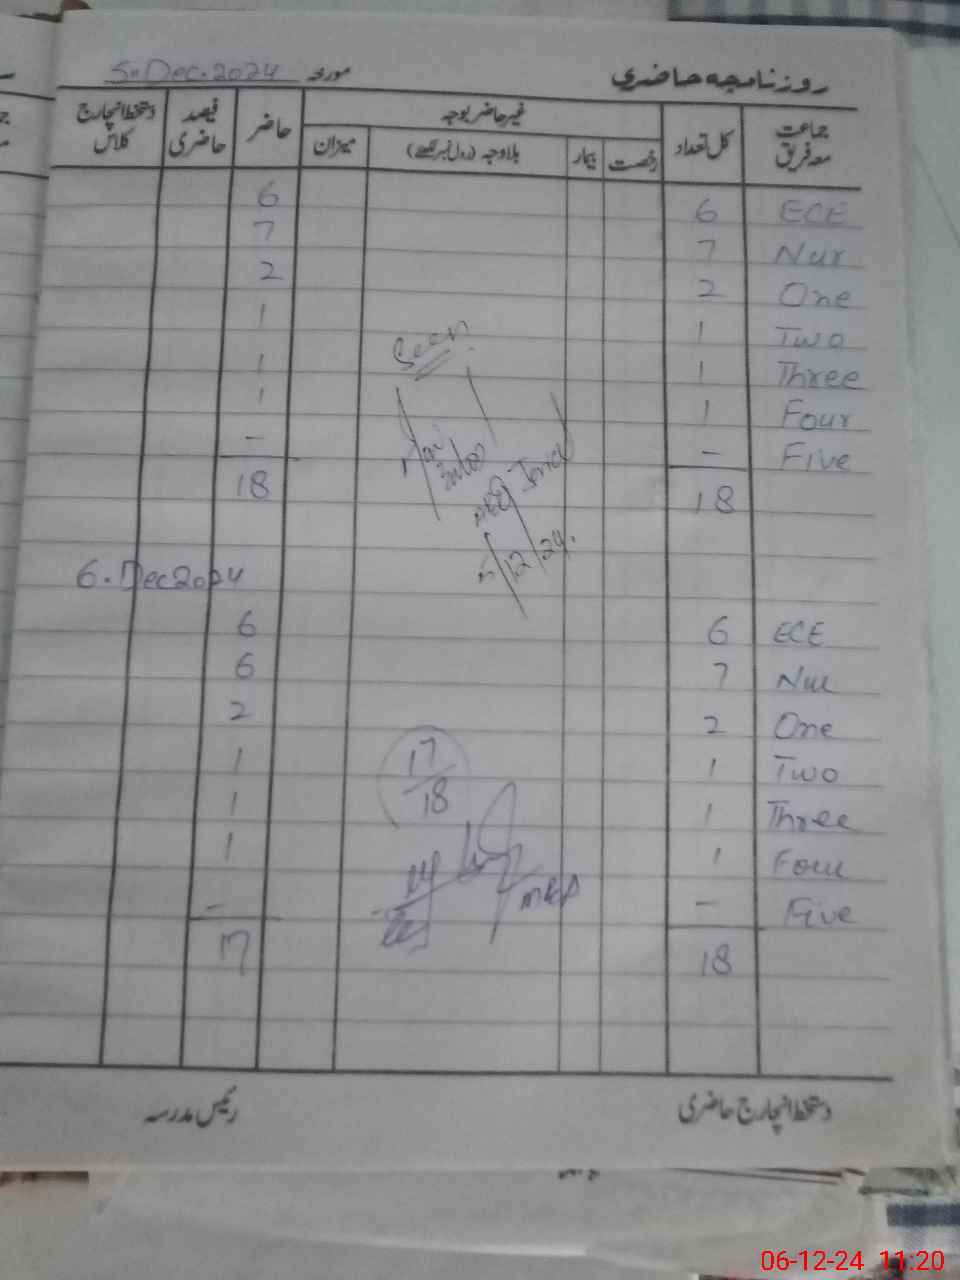 روزنامچہ حاضری مورخہ 5.Dec.2024
جماعت معہ فریق کل تعداد غیر حاضر بوجہ حاضر فیصد حاضری دستخط انچارج کلاس
رخصت بیمار بلاوجہ (رول نمبر لکھیے) میزان
ECE 6 6
Nur 7 7
One 2 2
Two 1 1
Three 1 1
Four 1 1
Five - -
18 18
Seen
5/12/24.
6.Dec2024
ECE 6 6
Nur 7 6
One 2 2
Two 1 1
Three 1 1
Four 1 1
Five - -
18 17
17
18
دستخط انچارج حاضری رئیس مدرسہ
06-12-24 11:20